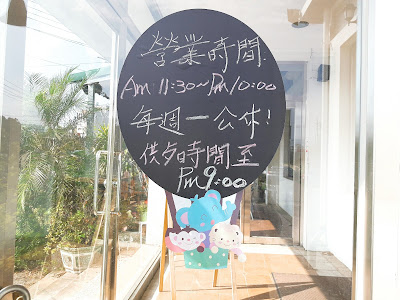 營業時間:
Am 11:30~Pm 10:00
每週一公休!
供夕時間至
Pm 9:00